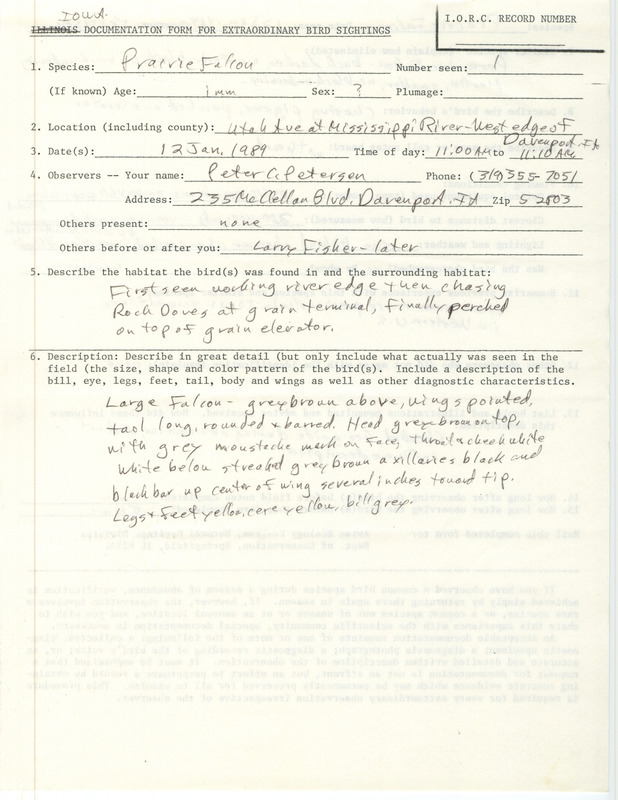 IOWA
ILLINOIS DOCUMENTATION FORM FOR EXTRAORDINARY BIRD SIGHTINGS
I.O.R.C. RECORD NUMBER
1. Species: Prairie Falcon Number seen: 1
(If known) Age: imm Sex: ? Plumage:
2. Location (including county): Utah Ave at Mississippi River-West edge of
Davenport, Ia
3. Date(s): 12 Jan, 1989 Time of day: 11:00 AM to 11:10 AM
4. Observers -- Your name: Peter C. Petersen Phone: (319) 355-7051
Address: 235 McClellan Blvd, Davenport, Ia Zip 52803
Others present: none
Others before or after you: Larry Fisher - later
5. Describe the habitat the bird(s) was found in and the surrounding habitat:
First seen working river edge then chasing
Rock Doves at grain terminal, finally perched
on top of grain elevator.
6. Description: Describe in great detail (but only include what actually was seen in the
field (the size, shape and color pattern of the bird(s). Include a description of the
bill, eye, legs, feet, tail, body and wings as well as other diagnostic characteristics.
Large Falcon - greybrown above, wings pointed,
tail long, rounded & barred. Head greybrown on top,
with grey moustache mark on face, throat & cheek white
White below streaked greybrown axillaries black and
black bar up center of wing several inches toward tip.
Legs & feet yellow, cere yellow, bill grey.